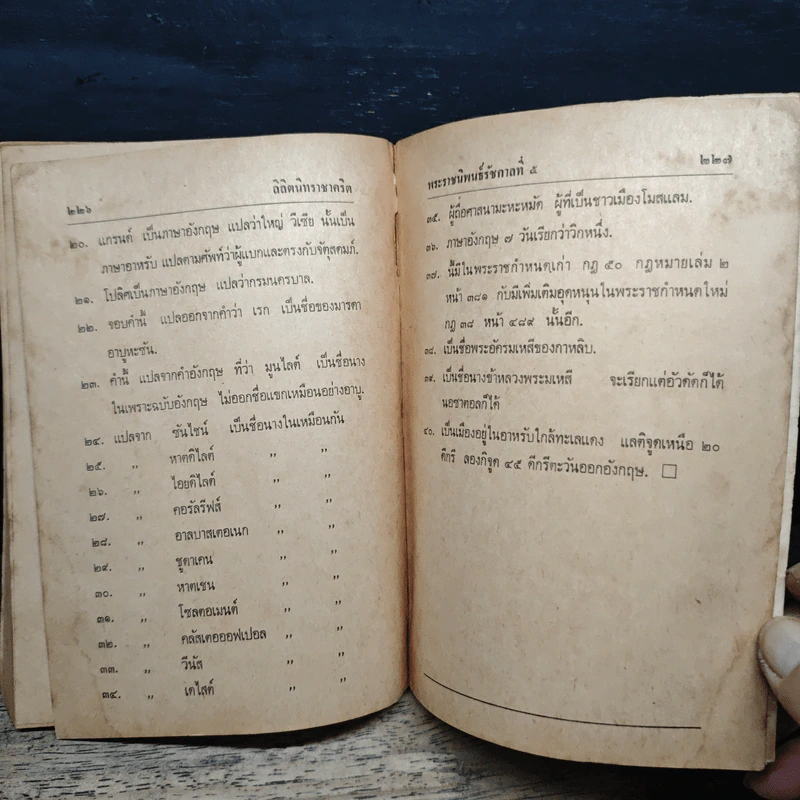 ๒๒๖
ลิลิตนิทราชาคริต
๒๐. แกรนด์ เป็นภาษาอังกฤษ แปลว่าใหญ่ วีเซีย นั้นเป็น
ภาษาอาหรับ แปลตามศัพท์ว่าผู้แบกและตรงกับจัตุสดมภ์.
๒๑. โปลิศเป็นภาษาอังกฤษ แปลว่ากรมนครบาล.
๒๒. จอบคำนี้ แปลออกจากคำว่า เรก เป็นชื่อของมารดา
อาบูหะซัน.
๒๓. คำนี้ แปลจากคำอังกฤษ ที่ว่า มูนไลต์ เป็นชื่อนาง
ในเพราะฉบับอังกฤษ ไม่ออกชื่อแขกเหมือนอย่างอาบู.
๒๔. แปลจาก ซันไชน์ เป็นชื่อนางในเหมือนกัน
๒๕. ,, หาตดิไลต์ ,, ,,
๒๖. ,, ไอยดิไลต์ ,, ,,
๒๗. ,, คอรัลรีฟส์ ,, ,,
๒๘. ,, อาลบาสเตอเนก ,, ,,
๒๙. ,, ชูดาเคน ,, ,,
๓๐. ,, หาตเชน ,, ,,
๓๑. ,, โซลตอเมนต์ ,, ,,
๓๒. ,, คลัสเตอออฟเปอล ,, ,,
๓๓. ,, วีนัส ,, ,,
๓๔. ,, เดไลต์ ,, ,,
พระราชนิพนธ์รัชกาลที่ ๕
๒๒๗
๓๕. ผู้ถือศาสนามะหะหมัด ผู้ที่เป็นชาวเมืองโมสแลม.
๓๖. ภาษาอังกฤษ ๗ วันเรียกว่าวิกหนึ่ง.
๓๗. นี้มีในพระราชกำหนดเก่า กฎ ๕๐ กฎหมายเล่ม ๒
หน้า ๓๘๑ กับมีเพิ่มเติมอุดหนุนในพระราชกำหนดใหม่
กฎ ๓๘ หน้า ๔๘๙ นั้นอีก.
๓๘. เป็นชื่อพระอัครมเหสีของกาหลิบ.
๓๙. เป็นชื่อนางข้าหลวงพระมเหสี จะเรียกแต่อัวดัดก็ได้
นอซาตอลก็ได้
๔๐. เป็นเมืองอยู่ในอาหรับใกล้ทะเลแดง แลติจูดเหนือ ๒๐
ดีกรี ลองกิจูด ๔๕ ดีกรีตะวันออกอังกฤษ. □